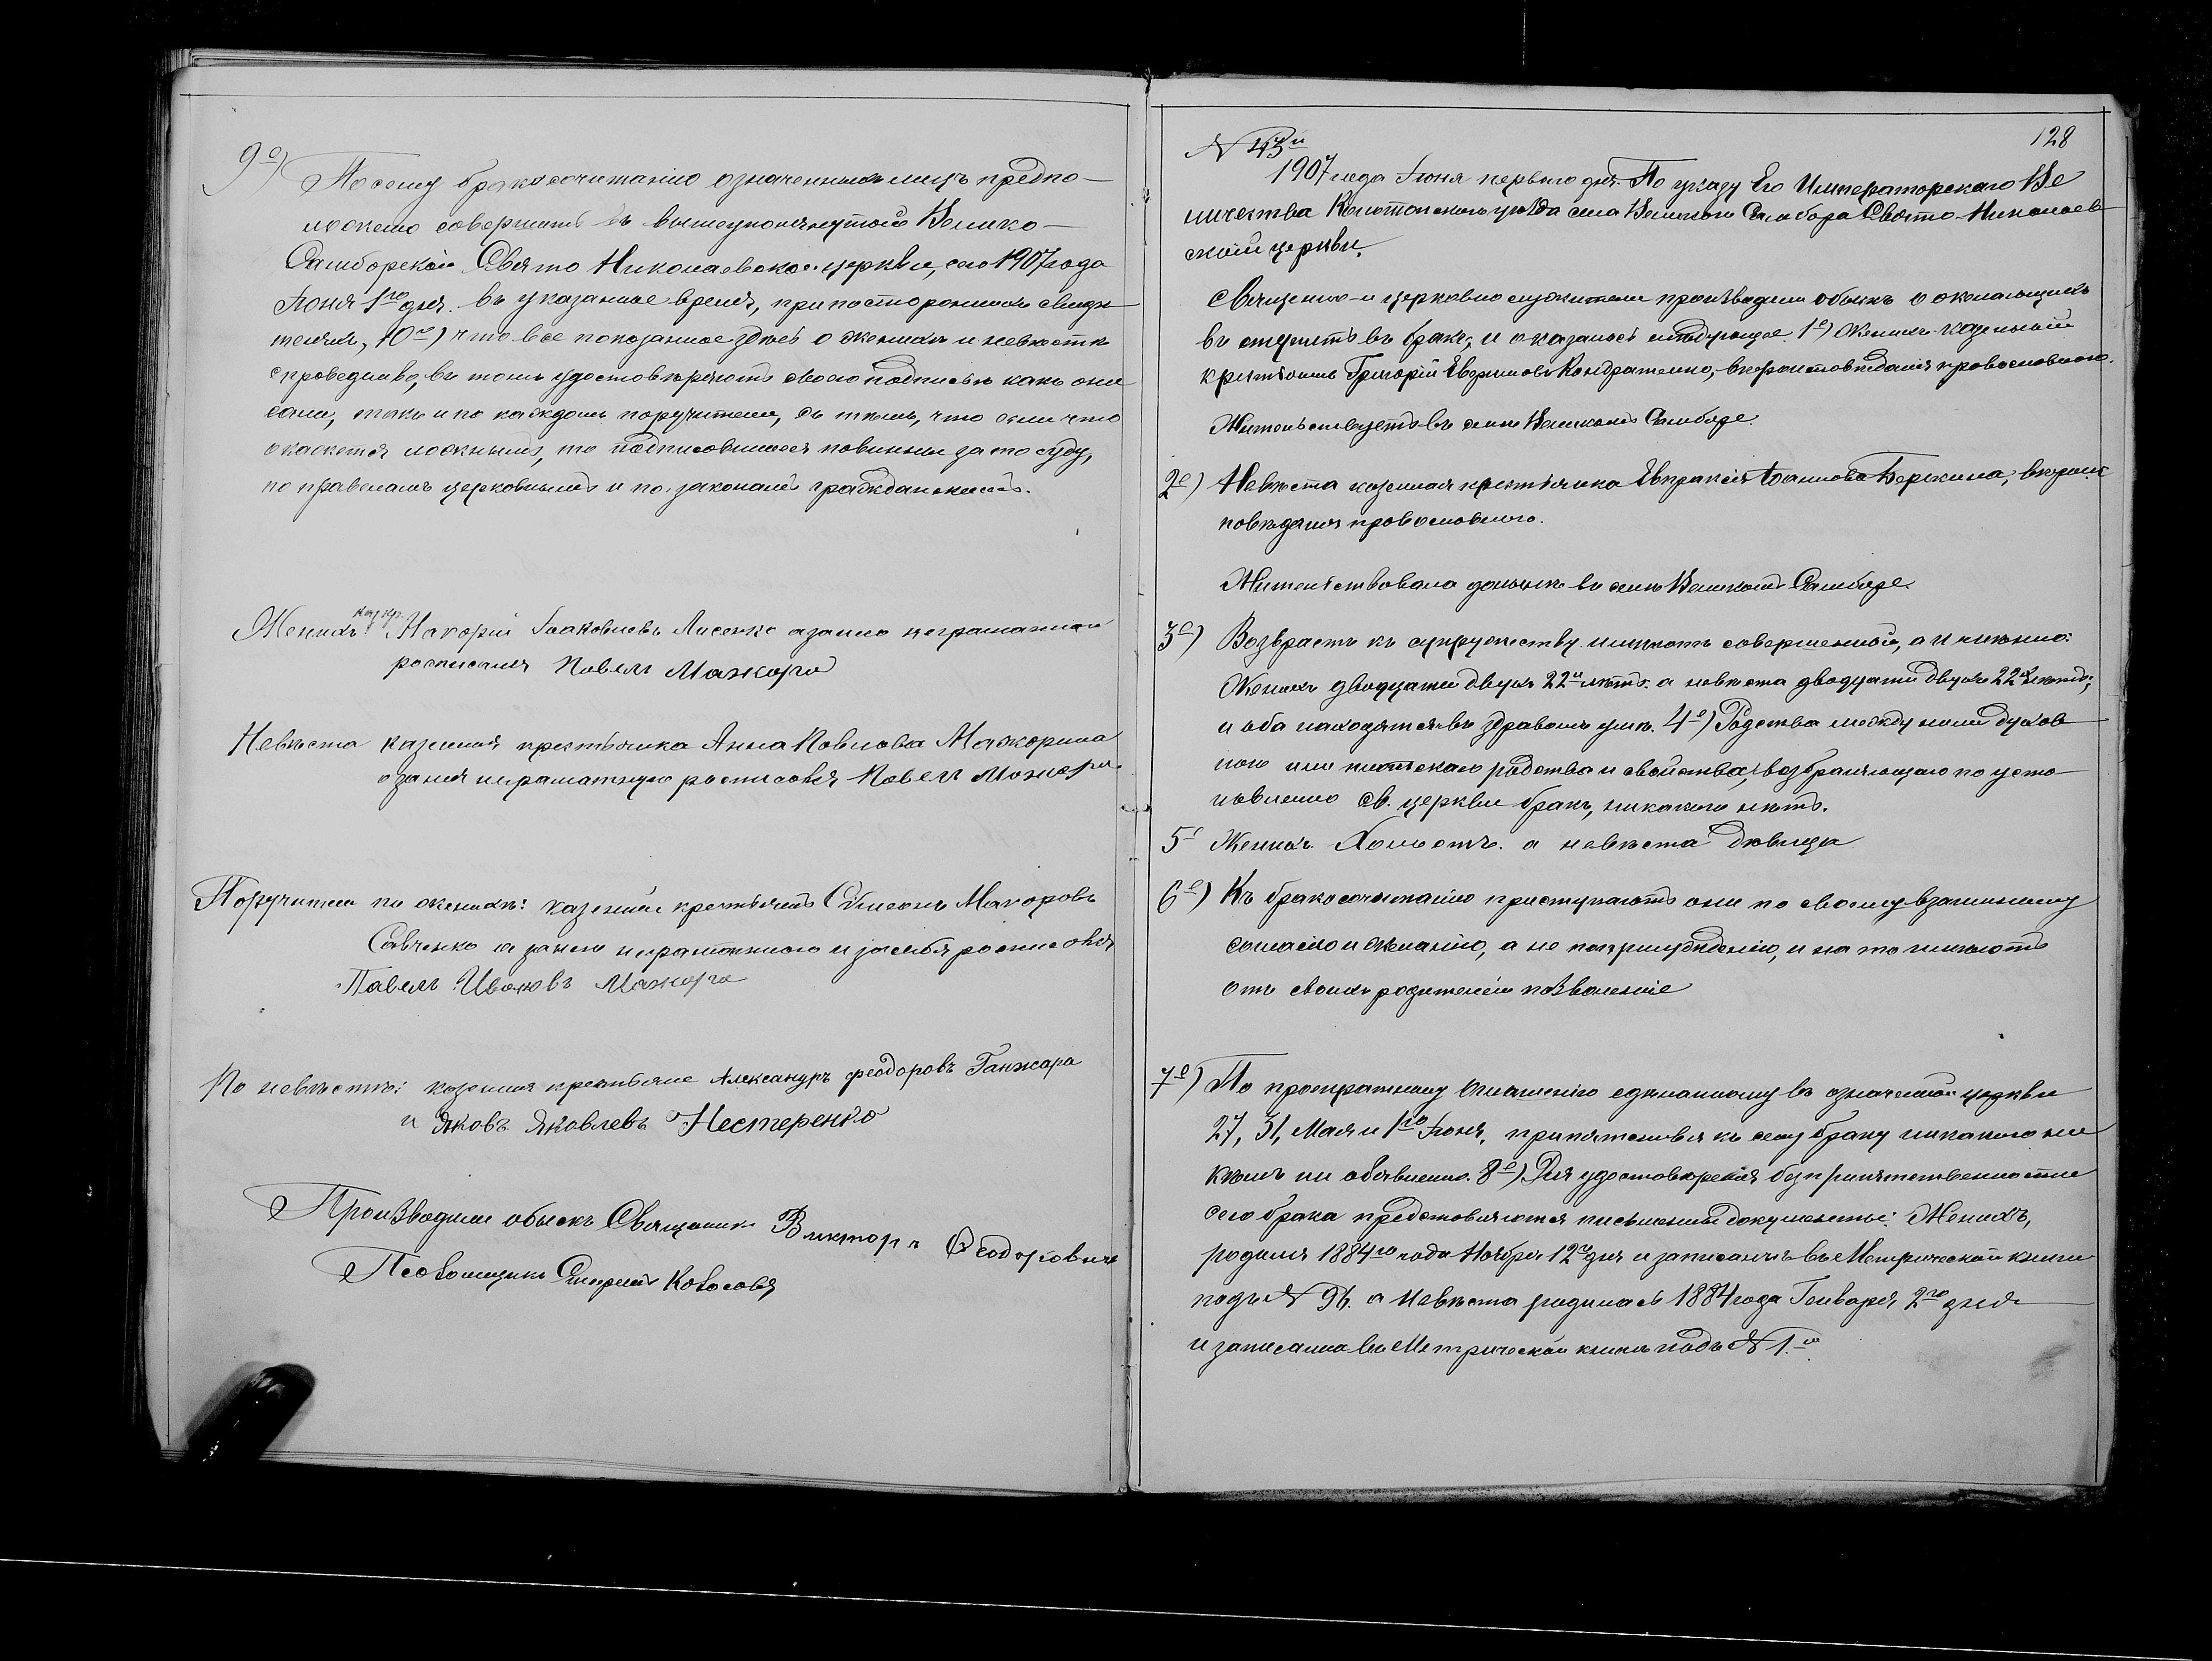 9е) Посему бракосочитанію означенныхъ лицъ предпо-
ложено совершить въ вышеупомянутой Велико-
Самборской Свято Николаевской церкви, сего 1907 года
Іюня 1го дня. въ указанное время, при постороннихъ свидѣ-
теляхъ, 10е) что все показанное здѣсь о женихѣ и невѣстѣ
справедливо, въ томъ удостовѣряютъ своею подписью какъ они
сами, такъ и по каждомъ поручители, съ тѣмъ, что если что
окажется ложнымъ, то подписовшіеся повинны за то суду,
по правиламъ церковнымъ и по законамъ гражданскимъ.
Женихъ каз. кр. Макорій Іоаковлевъ Лисенко а за него неграматнаго
росписался Повелъ Мажора
Невѣста казенная крестьянка Анна Повлова Мажорина
а за нея неграматную росписовся Повелъ Мажора
Поручители по женихѣ: казенные крестьяне Симеонъ Макаровъ
Савченко а за него неграматного и за себя росписовся
Павелъ Ивановъ Мажора
По невѣстѣ: казенныя крестьяне Александръ Феодоровъ Ганжара
и Яковъ Яковлевъ Нестеренко
Производили обыскъ Священникъ Викторъ Ѳеодоровичъ
Псаломщикъ
128
N 43й
1907 года Іюня перваго дня. По указу Его Императорскаго Ве
личества Конотопскаго уѣзда села Великого Самбора Свято-Николаев-
ской церкви.
Священно- и церковно служители производили обыскъ о желающихъ
вступить въ бракъ, и оказалось слѣдующее. 1е) Женихъ казенный
крестьянинъ Григорій Кондратенко, вѣроисповѣданія провославного.
Жительствуетъ въ селѣ Великомъ Самборѣ.
2е) Невѣста казенная крестьянка Евпраксія Іоаннова Бережина, вѣроис
повѣданія провославного.
Жительствовала донынѣ въ селѣ Великомъ Самборѣ.
3е) Возврастъ къ супружеству имѣютъ совершенный, а именно:
Женихъ двадцати двухъ 22х лѣтъ. а невѣста двадцати двухъ 22х лѣтъ;
и оба находятся въ здравомъ умѣ. 4е) Родства между ними духов-
ного или плотскаго родства и свойства, возбраняющаго по уста-
новленію св. церкви бракъ, никакого нѣтъ.
5е Женихъ Холостъ. а невѣста дѣвица
6е) Къ бракосочетанію приступаютъ они по своему взаимному
согласію и желанію, а не по принужденію, и на то имѣютъ
отъ своихъ родителей позволеніе
7е) По троекратному оглашенію сдѣланному въ означенной церкви
27, 31, Мая и 1го Іюня, припятствія къ сему браку никакого ни
кѣмъ ни объявлено. 8е) Для удостовѣренія безприпятственности
сего брака предстовляются письменные документы: Женихъ,
родился 1884го года Ноября 12го дня и записанъ въ Метрической книги
подъ N 96. а Невѣста родилась 1884 года Генваря 2го дня
и записанна въ Метрической книгѣ подъ N 1.м